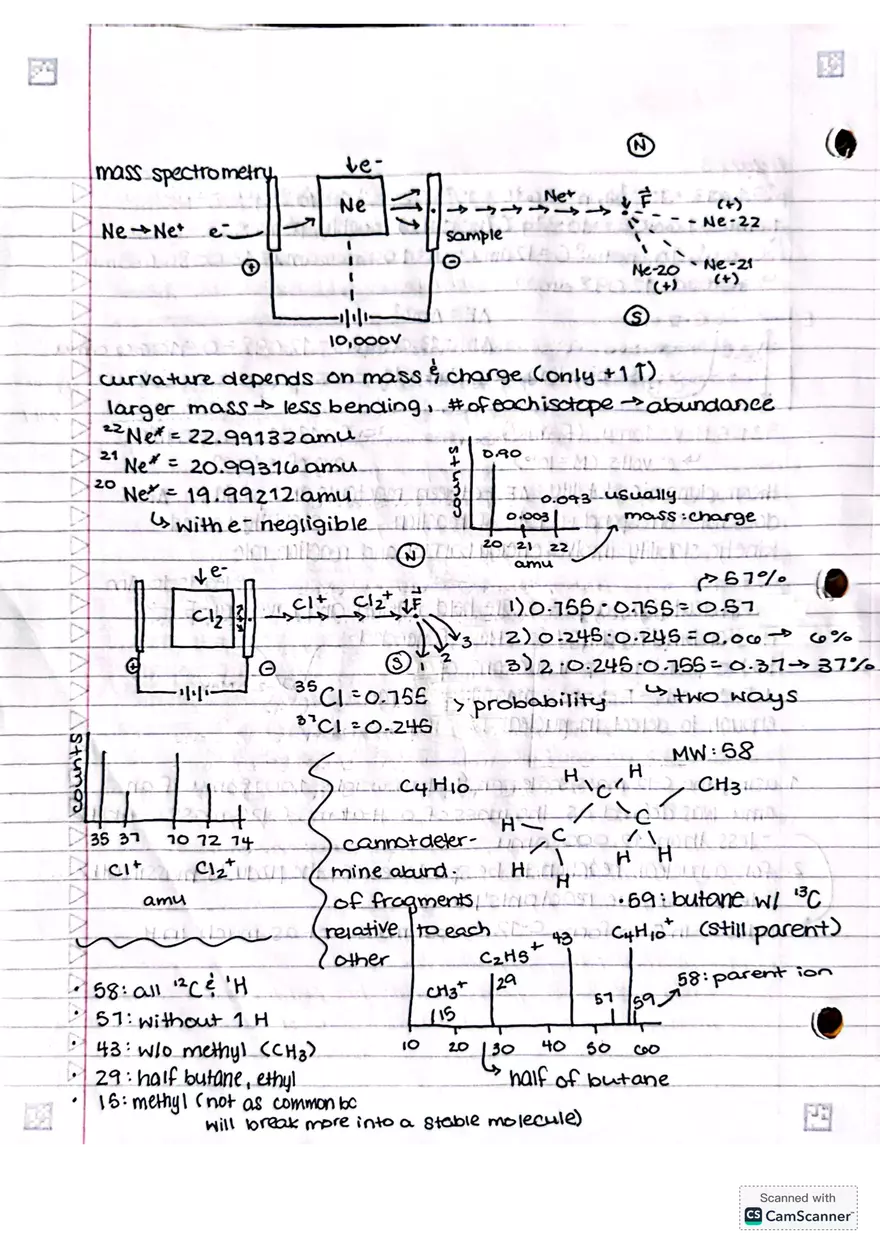 mass spectrometry
↓e-
Ne
N
Ne → Ne+ e-
sample
Ne+
F
(+)
Ne-22
Ne-20 (+)
Ne-21 (+)
+
-
S
10,000V
curvature depends on mass & charge (only +1↑)
larger mass → less bending, # of each isotope → abundance
22Ne* = 22.99132 amu
21Ne* = 20.99316 amu
20Ne* = 19.99212 amu
↳ with e- negligible
strung
0.90
0.003
0.093
20 21 22
amu
usually
mass:charge
↓e-
Cl2
+
-
N
Cl+ Cl2+
F
S
1 2 3
57%
1) 0.755 · 0.755 = 0.57
2) 0.245 · 0.245 = 0.06 → 6%
3) 2 · 0.245 · 0.755 = 0.37 → 37%
↳ two ways
35Cl = 0.755
37Cl = 0.245
> probability
35 37 70 72 74
Cl+ Cl2+
amu
C4H10
MW: 58
H H
C CH3
H C C
H H H H
cannot deter-
mine abund.
of fragments
relative to each
other
· 59: butane w/ 13C
(still parent)
CH3+
15
C2H5+
29
43
C4H10+
57
59
58: parent ion
10 20 30 40 50 60
↳ half of butane
· 58: all 12C & 1H
· 57: without 1 H
· 43: w/o methyl (CH3)
· 29: half butane, ethyl
· 15: methyl (not as common bc
will break more into a stable molecule)
Scanned with
CS CamScanner